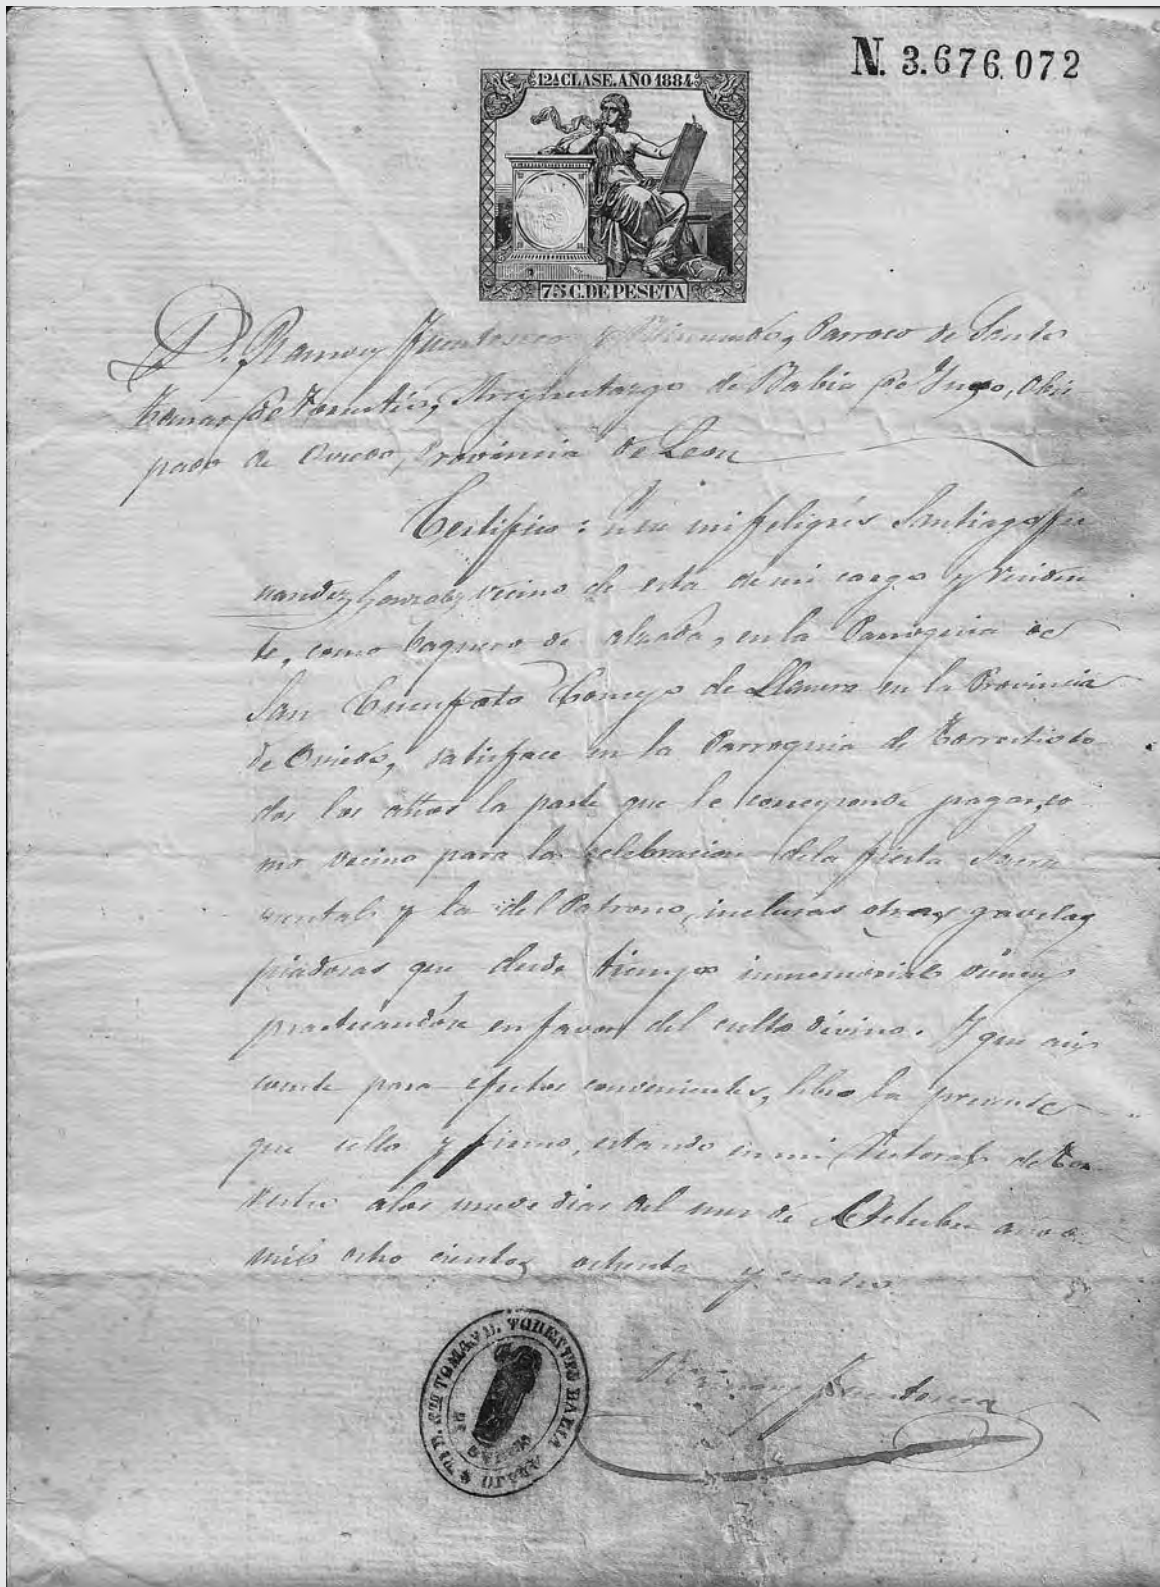 N. 3.676.072
12ª CLASE. AÑO 1884
75 C. DE PESETA
D. Ramon Fuentaseca y Parroco de Santo
Tomas de Torrestio, Arziprestazgo de Babia de Yuso, Obis
pado de Oviedo, Provincia de Leon
Certifico: Que mi feligrés Santiago Fer
nandez Gonzalez vecino de esta de mi cargo y residen
te, como baquero de alzada, en la Parroquia de
San Cucufato Concejo de Llanera en la Provincia
de Oviedo, satisface en la Parroquia de Torrestio to
dos los años la parte que le corresponde pagar, co
mo vecino para la celebracion de la fiesta Sacra
mental y la del Patrono, inclusas otras gavelas
piadosas que desde tiempo inmemorial vienen
practicandose en favor del culto divino. Y que asi
conste para efectos convenientes, libro la presente
que sello y firmo, estando en mi Rectoral de Tor
restio a los nueve dias del mes de Octubre año de
mil ocho cientos ochenta y cuatro.
Ramon Fuentaseca
STO TOMAS D. TORESTIO BABIA ABAJO